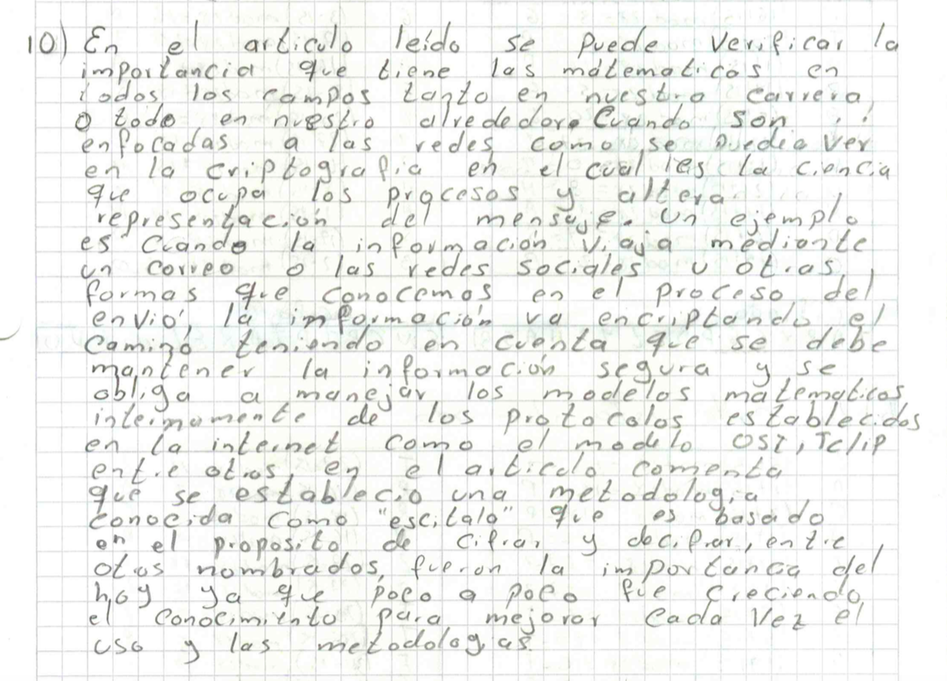 10) En el articulo leído se puede verificar la
importancia que tiene las matematicas en
todos los campos tanto en nuestra carrera
o todo en nuestro alrededor. Cuando son
enfocadas a las redes como se puede ver
en la criptografia en el cual es la ciencia
que ocupa los procesos y altera
representación del mensaje. Un ejemplo
es cuando la información viaja mediante
un correo o las redes sociales u otras
formas que conocemos en el proceso del
envió, la información va encriptando el
camino teniendo en cuenta que se debe
mantener la información segura y se
obliga a manejar los modelos matematicos
internamente de los protocolos establecidos
en la internet como el modelo OSI, Tc/ip
entre otros, en el articulo comenta
que se establecio una metodologia
conocida como "escitala" que es basado
en el proposito de cifrar y decifrar, entre
otros nombrados, fueron la importancia del
hoy ya que poco a poco fue creciendo
el conocimiento para mejorar cada vez el
uso y las metodologias.